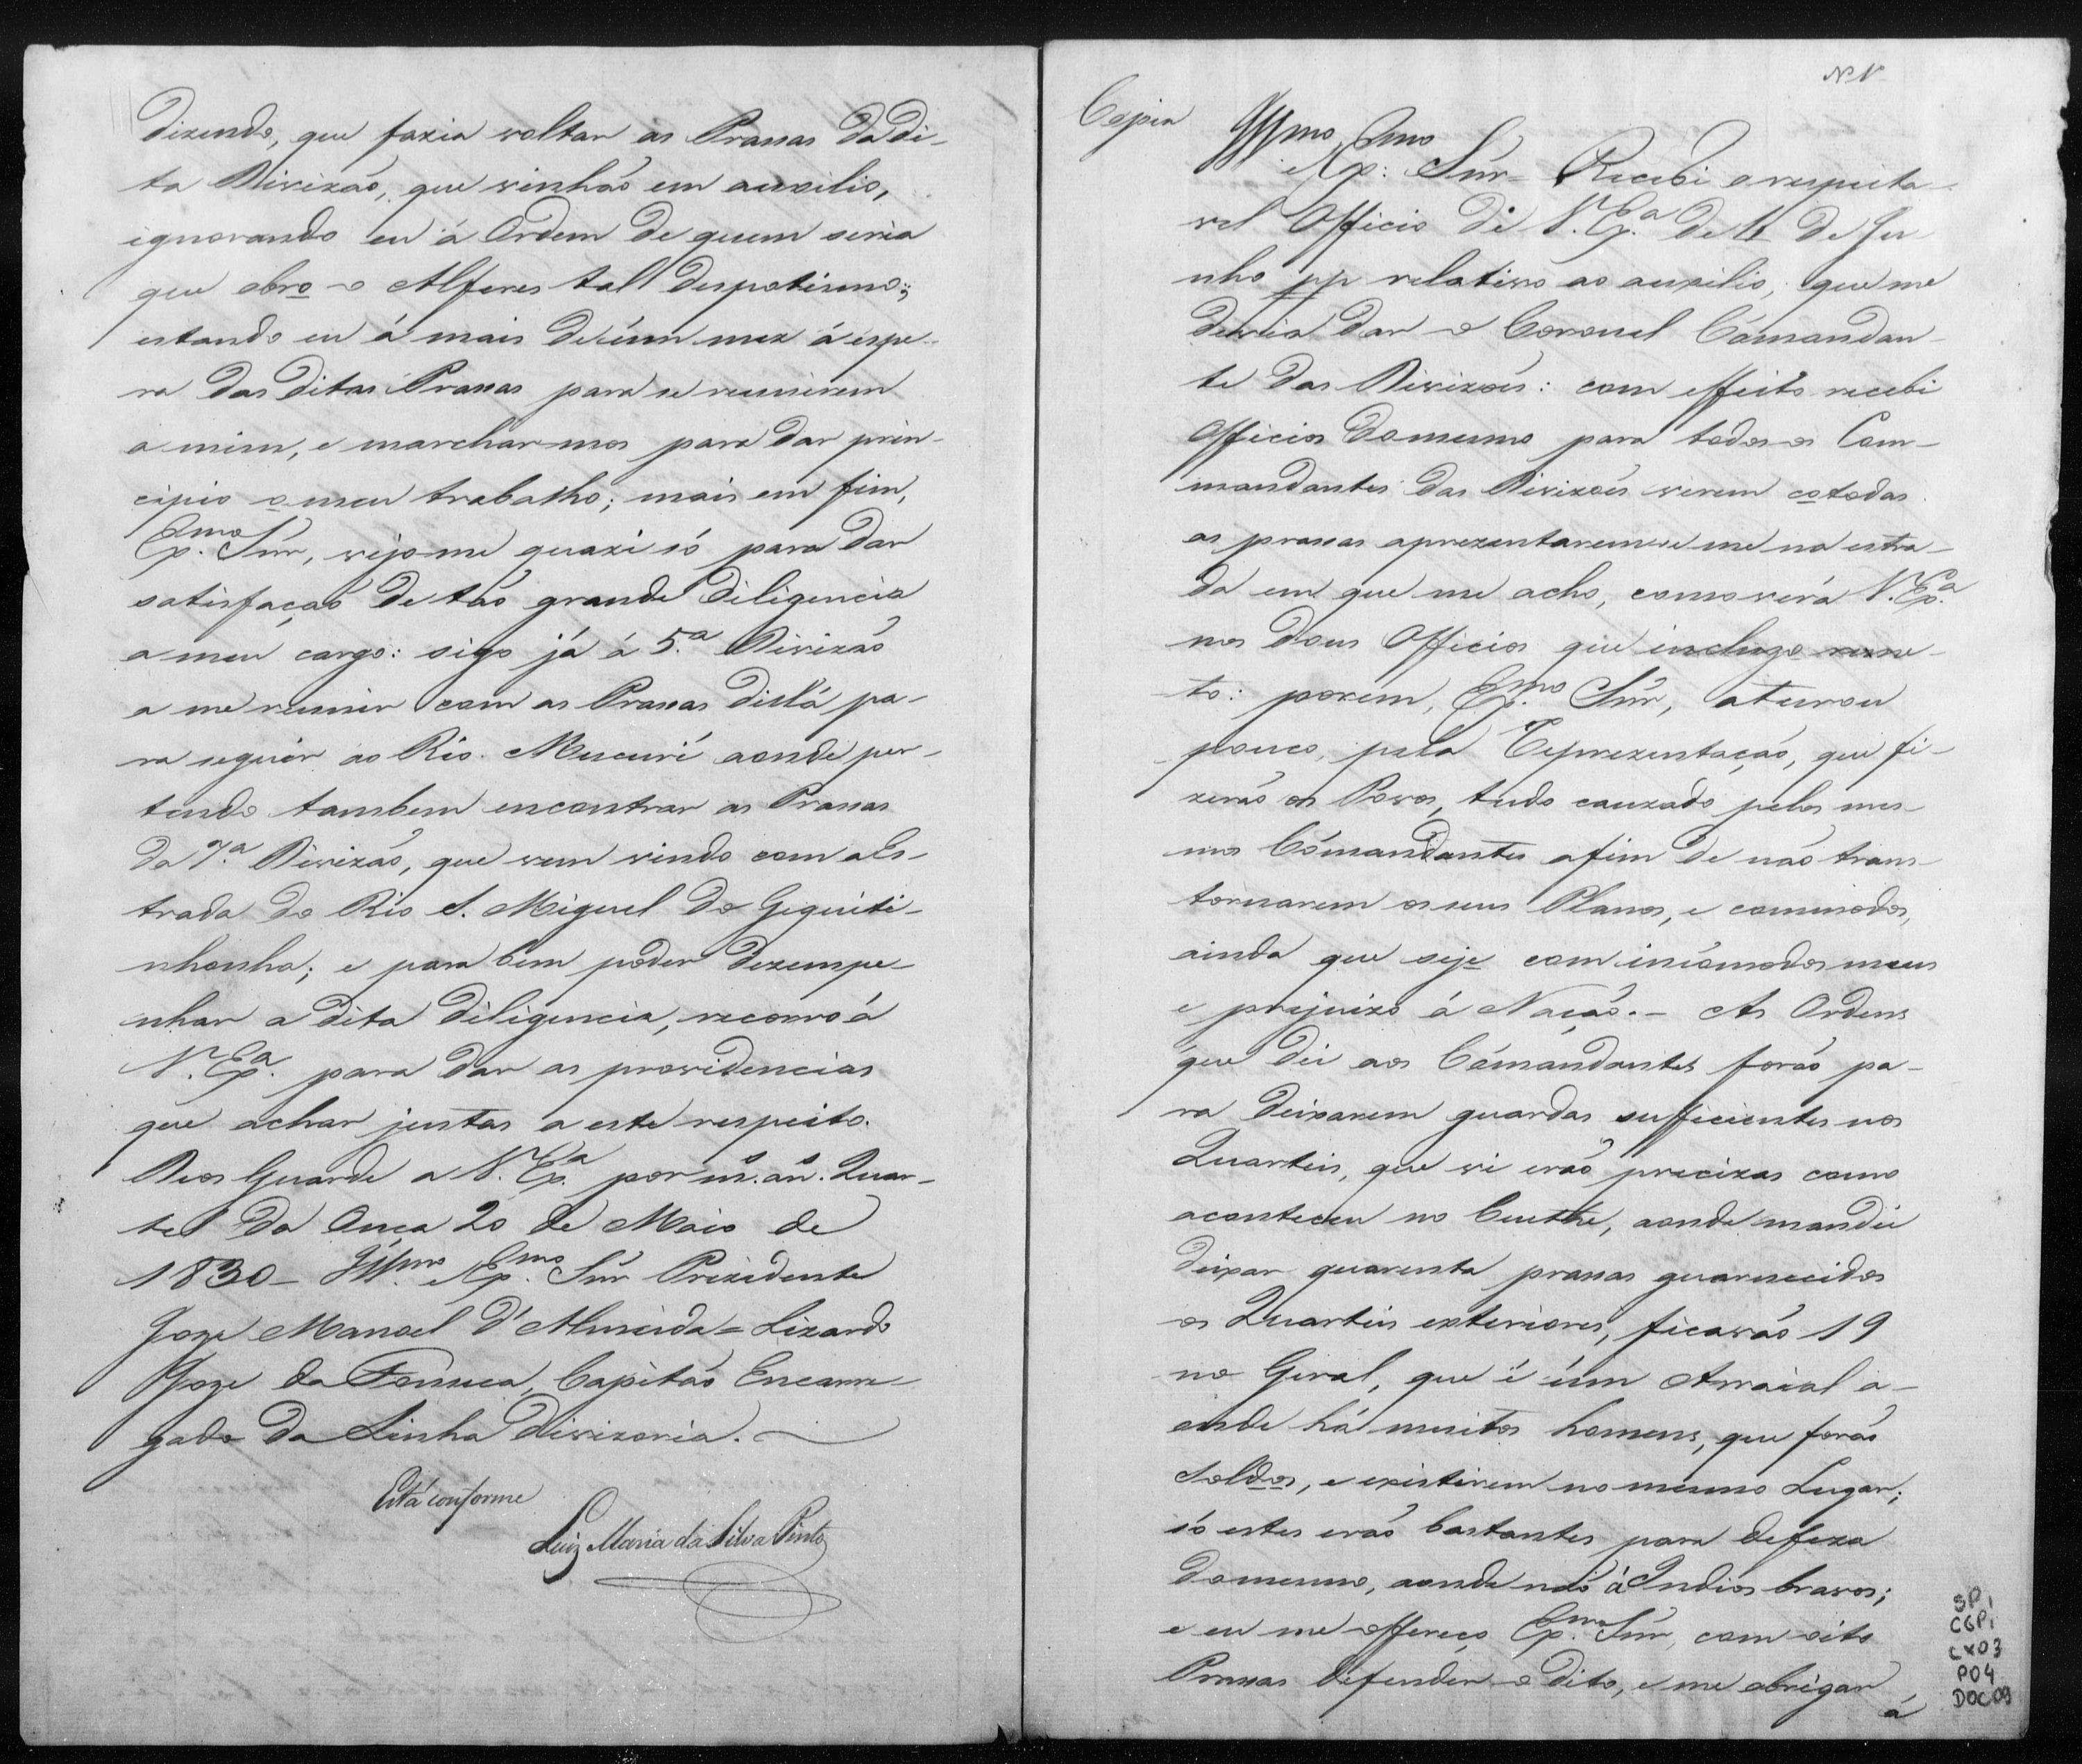 dizendo, que fazia voltar as Prasas da di-
ta Divizaõ, que vinhaõ em auxilio,
ignorando eu á Ordem de quem seria
que obro o Alferes tal despotismo;
estando eu á mais de úm mez á espe-
ra das ditas Prasas para se reunirem
a mim, e marchar-mos para dar prin-
cipio o meu trabalho; mais em fim,
Exmo. Snr, vejo-me quazi só para dar
satisfaçaõ de taõ grande diligencia
a meu cargo: sigo já á 5.ª Divizaõ
a me reunir com as Prasas dis'lá pa-
ra seguir ao Rio Mucuri aonde per-
tendo tambem encontrar as Prasas
da 7.ª Divizaõ, que vem vindo com a Es-
trada do Rio S. Miguel do Gequiti-
nhonha; e para bem poder dezempe-
nhar a dita diligencia, recorro á
V. Ex.ª para dar as providencias
que achar justas a este respeito.
Deos Guarde a V. Ex.ª por m.s an.s Quar-
tel da Onça 20 de Maio de
1830 - Illmo. e Exmo. Snr Prezidente
Joze Manoel d'Almeida = Lizardo
Joze da Fonseca, Capitaõ Encarre-
gado da Linha divizoria.
Está conforme
Luiz Maria da Silva Pinto
Nº
Copia
Illmo e Exmo
Snr - Recebi o respeita-
vel Officio de V. Ex.ª de 11 de Ju-
nho pp relativo ao auxilio, que me
devia dar o Coronel Cómandan-
te das Divizoẽs: com effeito recebi
Officios do mesmo para todos os Com-
mandantes das Divizoẽs virem co todas
as prasas aprezentarem-se me na estra-
da em que me acho, como verá V. Ex.ª
nos dous Officios que incluzo reme-
to: porem, Exmo. Snr, aturou
pouco, pela Reprezentaçaõ, que fi-
zeraõ os Povos, tudo cauzado pelos mes-
mos Cómandantes afim de naõ trans-
tornarem os seus Planos, e commodos,
ainda que seje com incómodos meus
e prejuizo á Naçaõ. - As Ordens
que dei aos Cómandantes foraõ pa-
ra deixarem guardas sufficientes nos
Quarteis, que vi eraõ precizas como
aconteceu no Cuethe, aonde mandei
deixar quarenta prasas guarnecidos
os Quarteis exteriores, ficavaõ 19
no Giral, que é úm Arraial a-
onde há muitos homens, que foraõ
Soldos, e existirem no mesmo Lugar;
só estes eraõ bastantes para defeza
do mesmo, aonde naõ á Indios bravos;
e eu me offereço Exmo. Snr, com oito
Prasas defender o dito, e me obrigar
á
SP1
CGP1
CX03
P04
DOC09